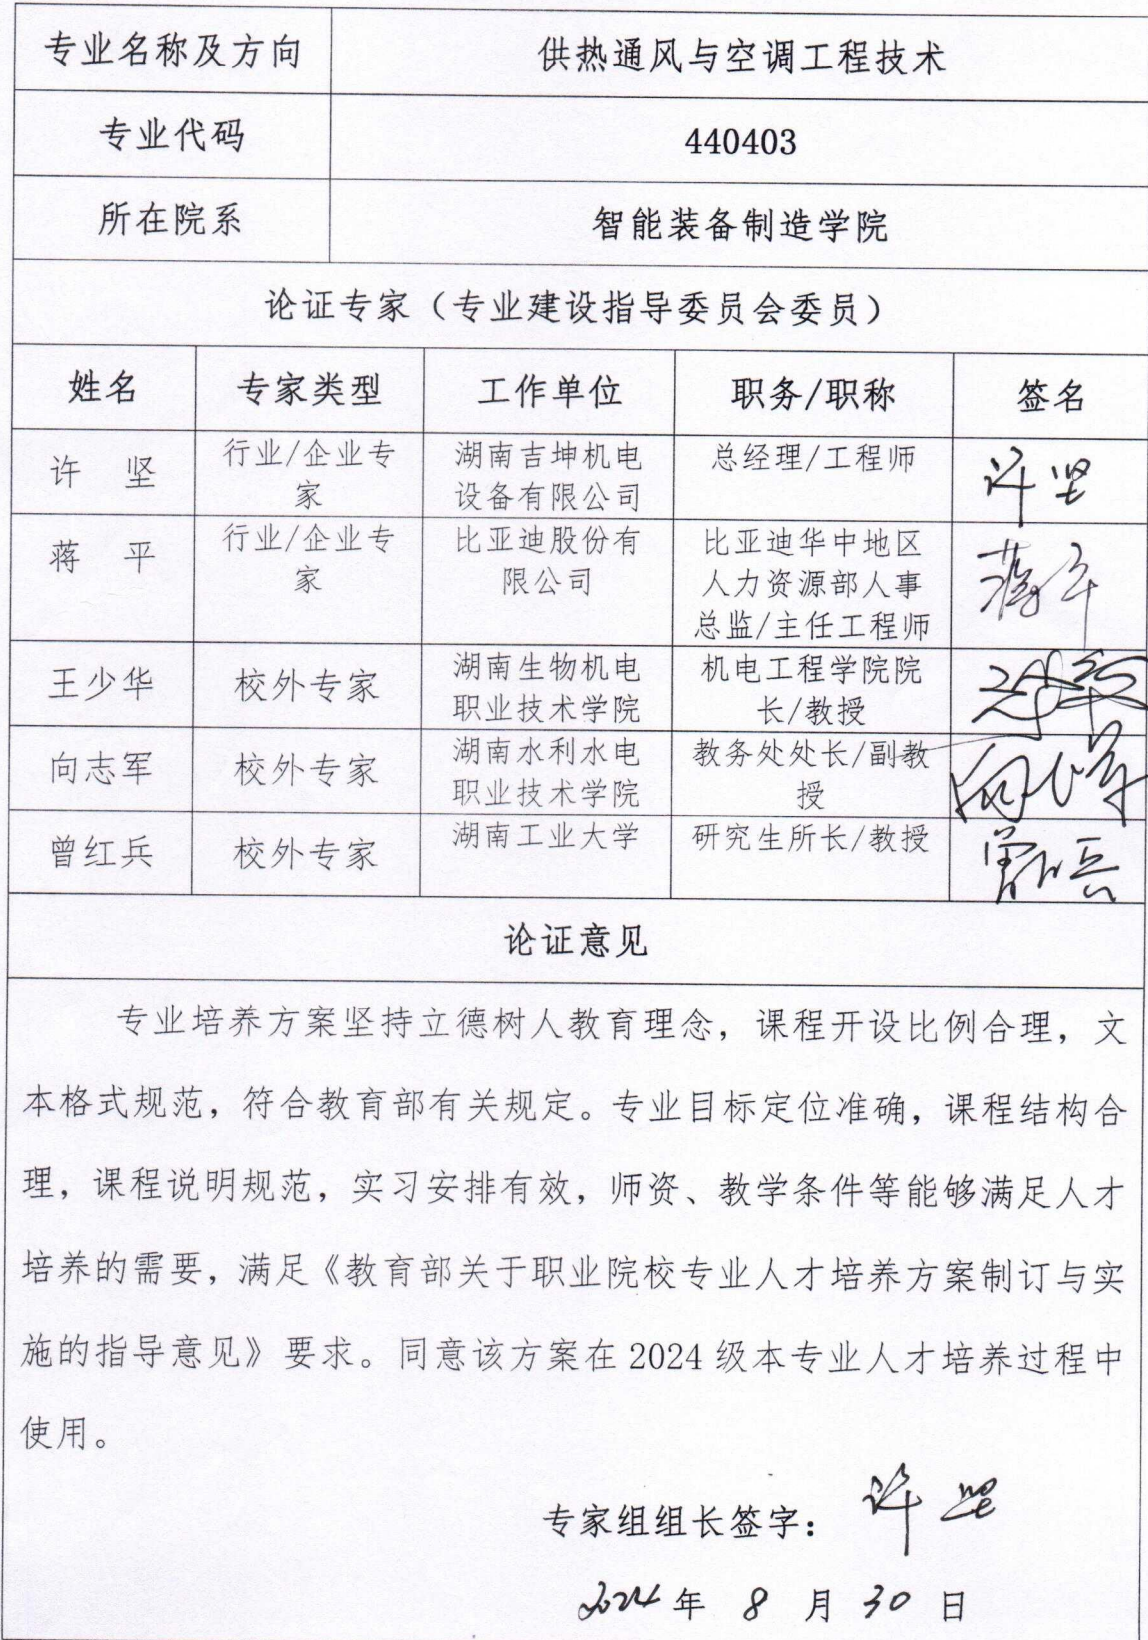 专业名称及方向 供热通风与空调工程技术
专业代码 440403
所在院系 智能装备制造学院
论证专家（专业建设指导委员会委员）
姓名 专家类型 工作单位 职务/职称 签名
许 坚 行业/企业专家 湖南吉坤机电设备有限公司 总经理/工程师 许坚
蒋 平 行业/企业专家 比亚迪股份有限公司 比亚迪华中地区人力资源部人事总监/主任工程师 蒋平
王少华 校外专家 湖南生物机电职业技术学院 机电工程学院院长/教授 王少华
向志军 校外专家 湖南水利水电职业技术学院 教务处处长/副教授 向志军
曾红兵 校外专家 湖南工业大学 研究生所长/教授 曾红兵
论证意见
专业培养方案坚持立德树人教育理念，课程开设比例合理，文
本格式规范，符合教育部有关规定。专业目标定位准确，课程结构合
理，课程说明规范，实习安排有效，师资、教学条件等能够满足人才
培养的需要，满足《教育部关于职业院校专业人才培养方案制订与实
施的指导意见》要求。同意该方案在 2024 级本专业人才培养过程中
使用。
专家组组长签字： 许坚
2024 年 8 月 30 日